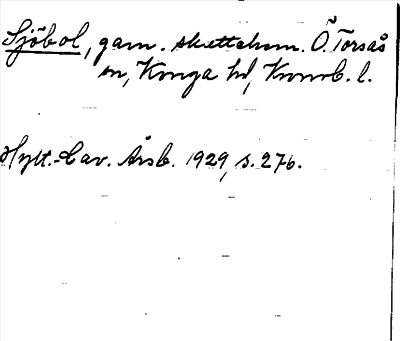 Sjöbol, gam. skattehem. Ö. Torsås
sn, Konga hd, Kronob. l.
Hylt.-Cav. Årsb. 1929, s. 276.